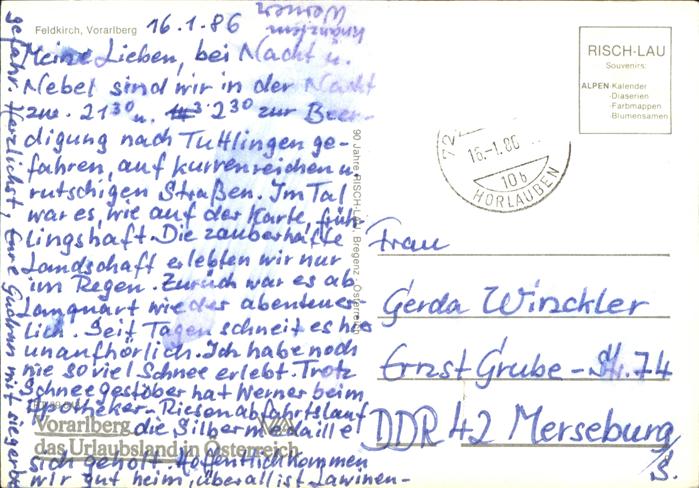 Feldkirch, Vorarlberg 16.1.86
Meine Lieben, bei Nacht u.
Nebel sind wir in der Nacht
zw. 21³⁰ u. 2³⁰ zur Beer-
digung nach Tuttlingen ge-
fahren, auf kurvenreichen u.
rutschigen Straßen. Im Tal
war es, wie auf der Karte, früh-
lingshaft. Die zauberhafte
Landschaft erlebten wir nur
im Regen. Zurück war es ab
Lanquart wieder abenteuer-
lich. Seit Tagen schneit es hier
unaufhörlich. Ich habe noch
nie so viel Schnee erlebt. Trotz
Schneegestöber hat Werner beim
Apotheker-Riesenabfahrtslauf
die Silbermedaille
sich geholt. Hoffentlich kommen
wir gut heim, überall ist Lawinen-
gefahr. Herzlichst, Eure Gudrun mit siegerb.
Werner
Vorarlberg
das Urlaubsland in Österreich
90 Jahre RISCH-LAU, Bregenz - Österreich
RISCH-LAU
Souvenirs:
ALPEN-Kalender
-Diaserien
-Farbmappen
-Blumensamen
72
16.-1.86
10b
HORLAUBEN
Frau
Gerda Winckler
Ernst Grube-Str. 74
DDR 42 Merseburg/
S.